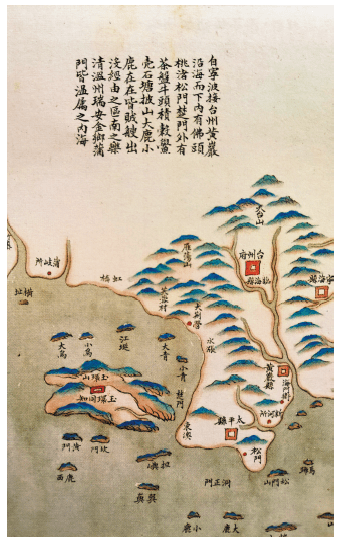 自寧波接台州黃巖
沿海而下內有佛頭
桃渚松門楚門外有
茶盤牛頭積穀鱟
壳石塘披山大鹿小
鹿在在皆賊艘出
沒經由之區南之樂
清溫州瑞安金鄉蒲
門皆溫屬之內海
天台山
台州府
臨海縣
寧海縣
雁蕩山
蒲岐所
虹橋
芙蓉村
大荊營
水漲
黃巖縣
海門衛
新河所
太平縣
松門
東澳
楚門
大青
小青
江堤
小烏
大烏
玉環山
玉環同知
黃門
坎門
鹿西
洞正門
松門山
大鹿
小鹿